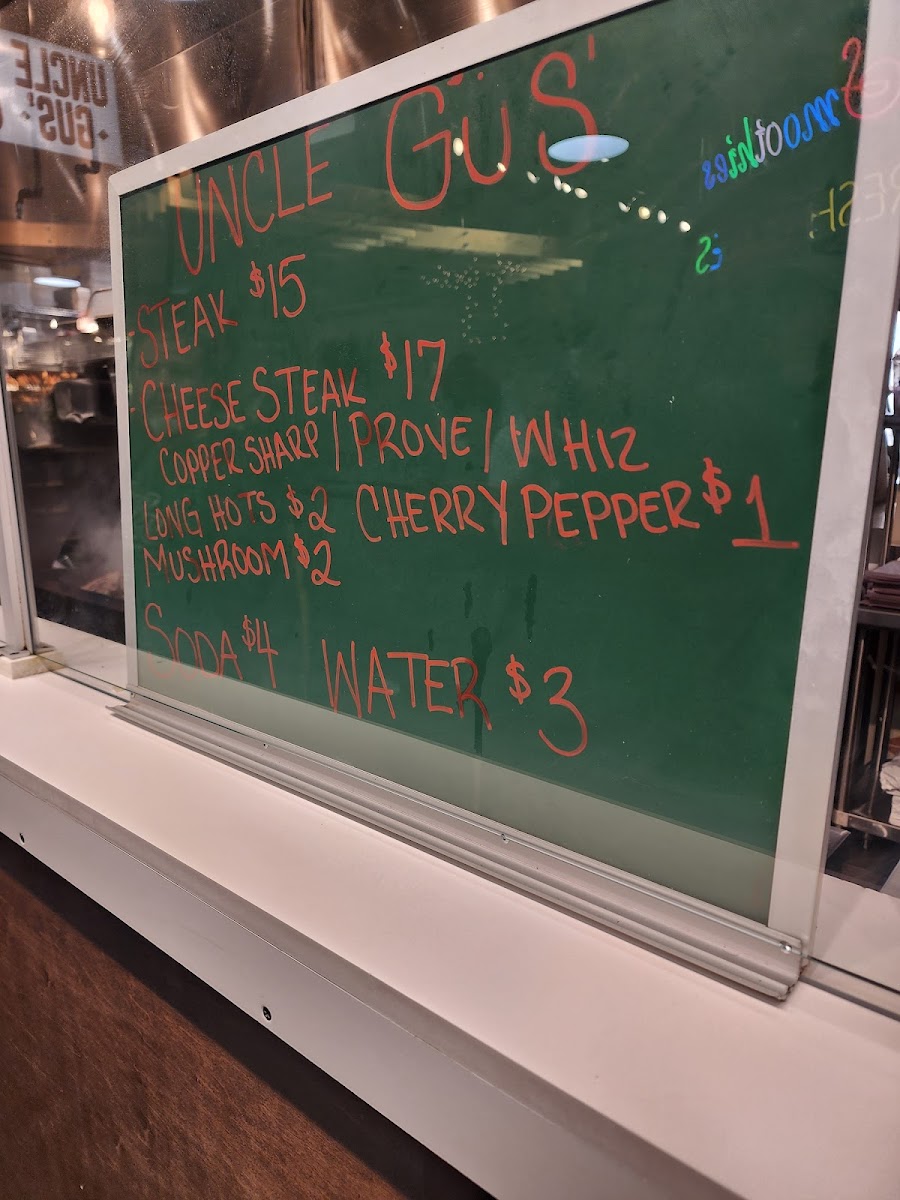 UNCLE
GUS'
UNCLE GÜS'
Smoothies
FRESH
is
-STEAK $15
-CHEESE STEAK $17
COPPER SHARP / PROVE / WHIZ
LONG HOTS $2 CHERRY PEPPER $1
MUSHROOM $2
SODA $4 WATER $3